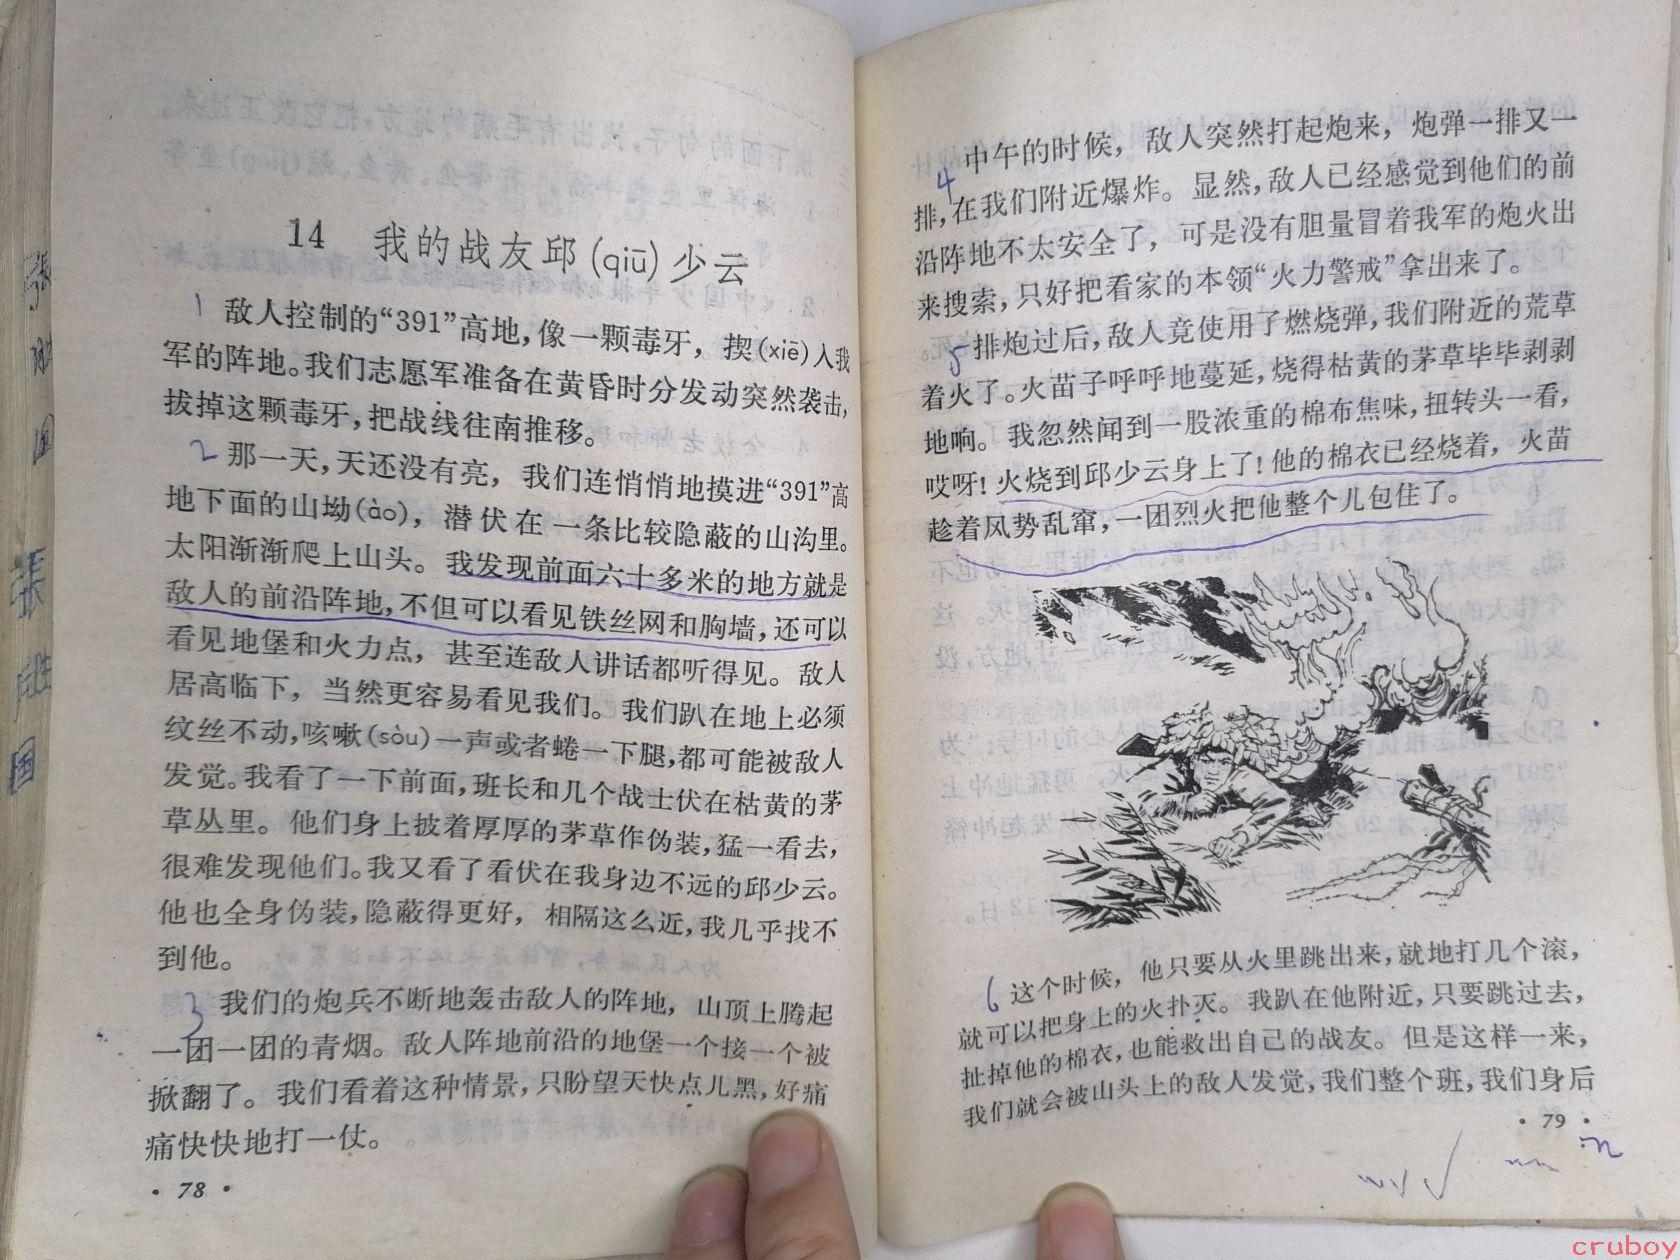 14 我的战友邱(qiū)少云
1 敌人控制的“391”高地，像一颗毒牙，揳(xiē)入我
军的阵地。我们志愿军准备在黄昏时分发动突然袭击，
拔掉这颗毒牙，把战线往南推移。
2 那一天，天还没有亮，我们连悄悄地摸进“391”高
地下面的山坳(ào)，潜伏在一条比较隐蔽的山沟里。
太阳渐渐爬上山头。我发现前面六十多米的地方就是
敌人的前沿阵地，不但可以看见铁丝网和胸墙，还可以
看见地堡和火力点，甚至连敌人讲话都听得见。敌人
居高临下，当然更容易看见我们。我们趴在地上必须
纹丝不动，咳嗽(sòu)一声或者蜷一下腿，都可能被敌人
发觉。我看了一下前面，班长和几个战士伏在枯黄的茅
草丛里。他们身上披着厚厚的茅草作伪装，猛一看去，
很难发现他们。我又看了看伏在我身边不远的邱少云。
他也全身伪装，隐蔽得更好，相隔这么近，我几乎找不
到他。
3 我们的炮兵不断地轰击敌人的阵地，山顶上腾起
一团一团的青烟。敌人阵地前沿的地堡一个接一个被
掀翻了。我们看着这种情景，只盼望天快点儿黑，好痛
痛快快地打一仗。
· 78 ·
4 中午的时候，敌人突然打起炮来，炮弹一排又一
排，在我们附近爆炸。显然，敌人已经感觉到他们的前
沿阵地不太安全了，可是没有胆量冒着我军的炮火出
来搜索，只好把看家的本领“火力警戒”拿出来了。
5 排炮过后，敌人竟使用了燃烧弹，我们附近的荒草
着火了。火苗子呼呼地蔓延，烧得枯黄的茅草毕毕剥剥
地响。我忽然闻到一股浓重的棉布焦味，扭转头一看，
哎呀！火烧到邱少云身上了！他的棉衣已经烧着，火苗
趁着风势乱窜，一团烈火把他整个儿包住了。
6 这个时候，他只要从火里跳出来，就地打几个滚，
就可以把身上的火扑灭。我趴在他附近，只要跳过去，
扯掉他的棉衣，也能救出自己的战友。但是这样一来，
我们就会被山头上的敌人发觉，我们整个班，我们身后
· 79 ·
cruboy